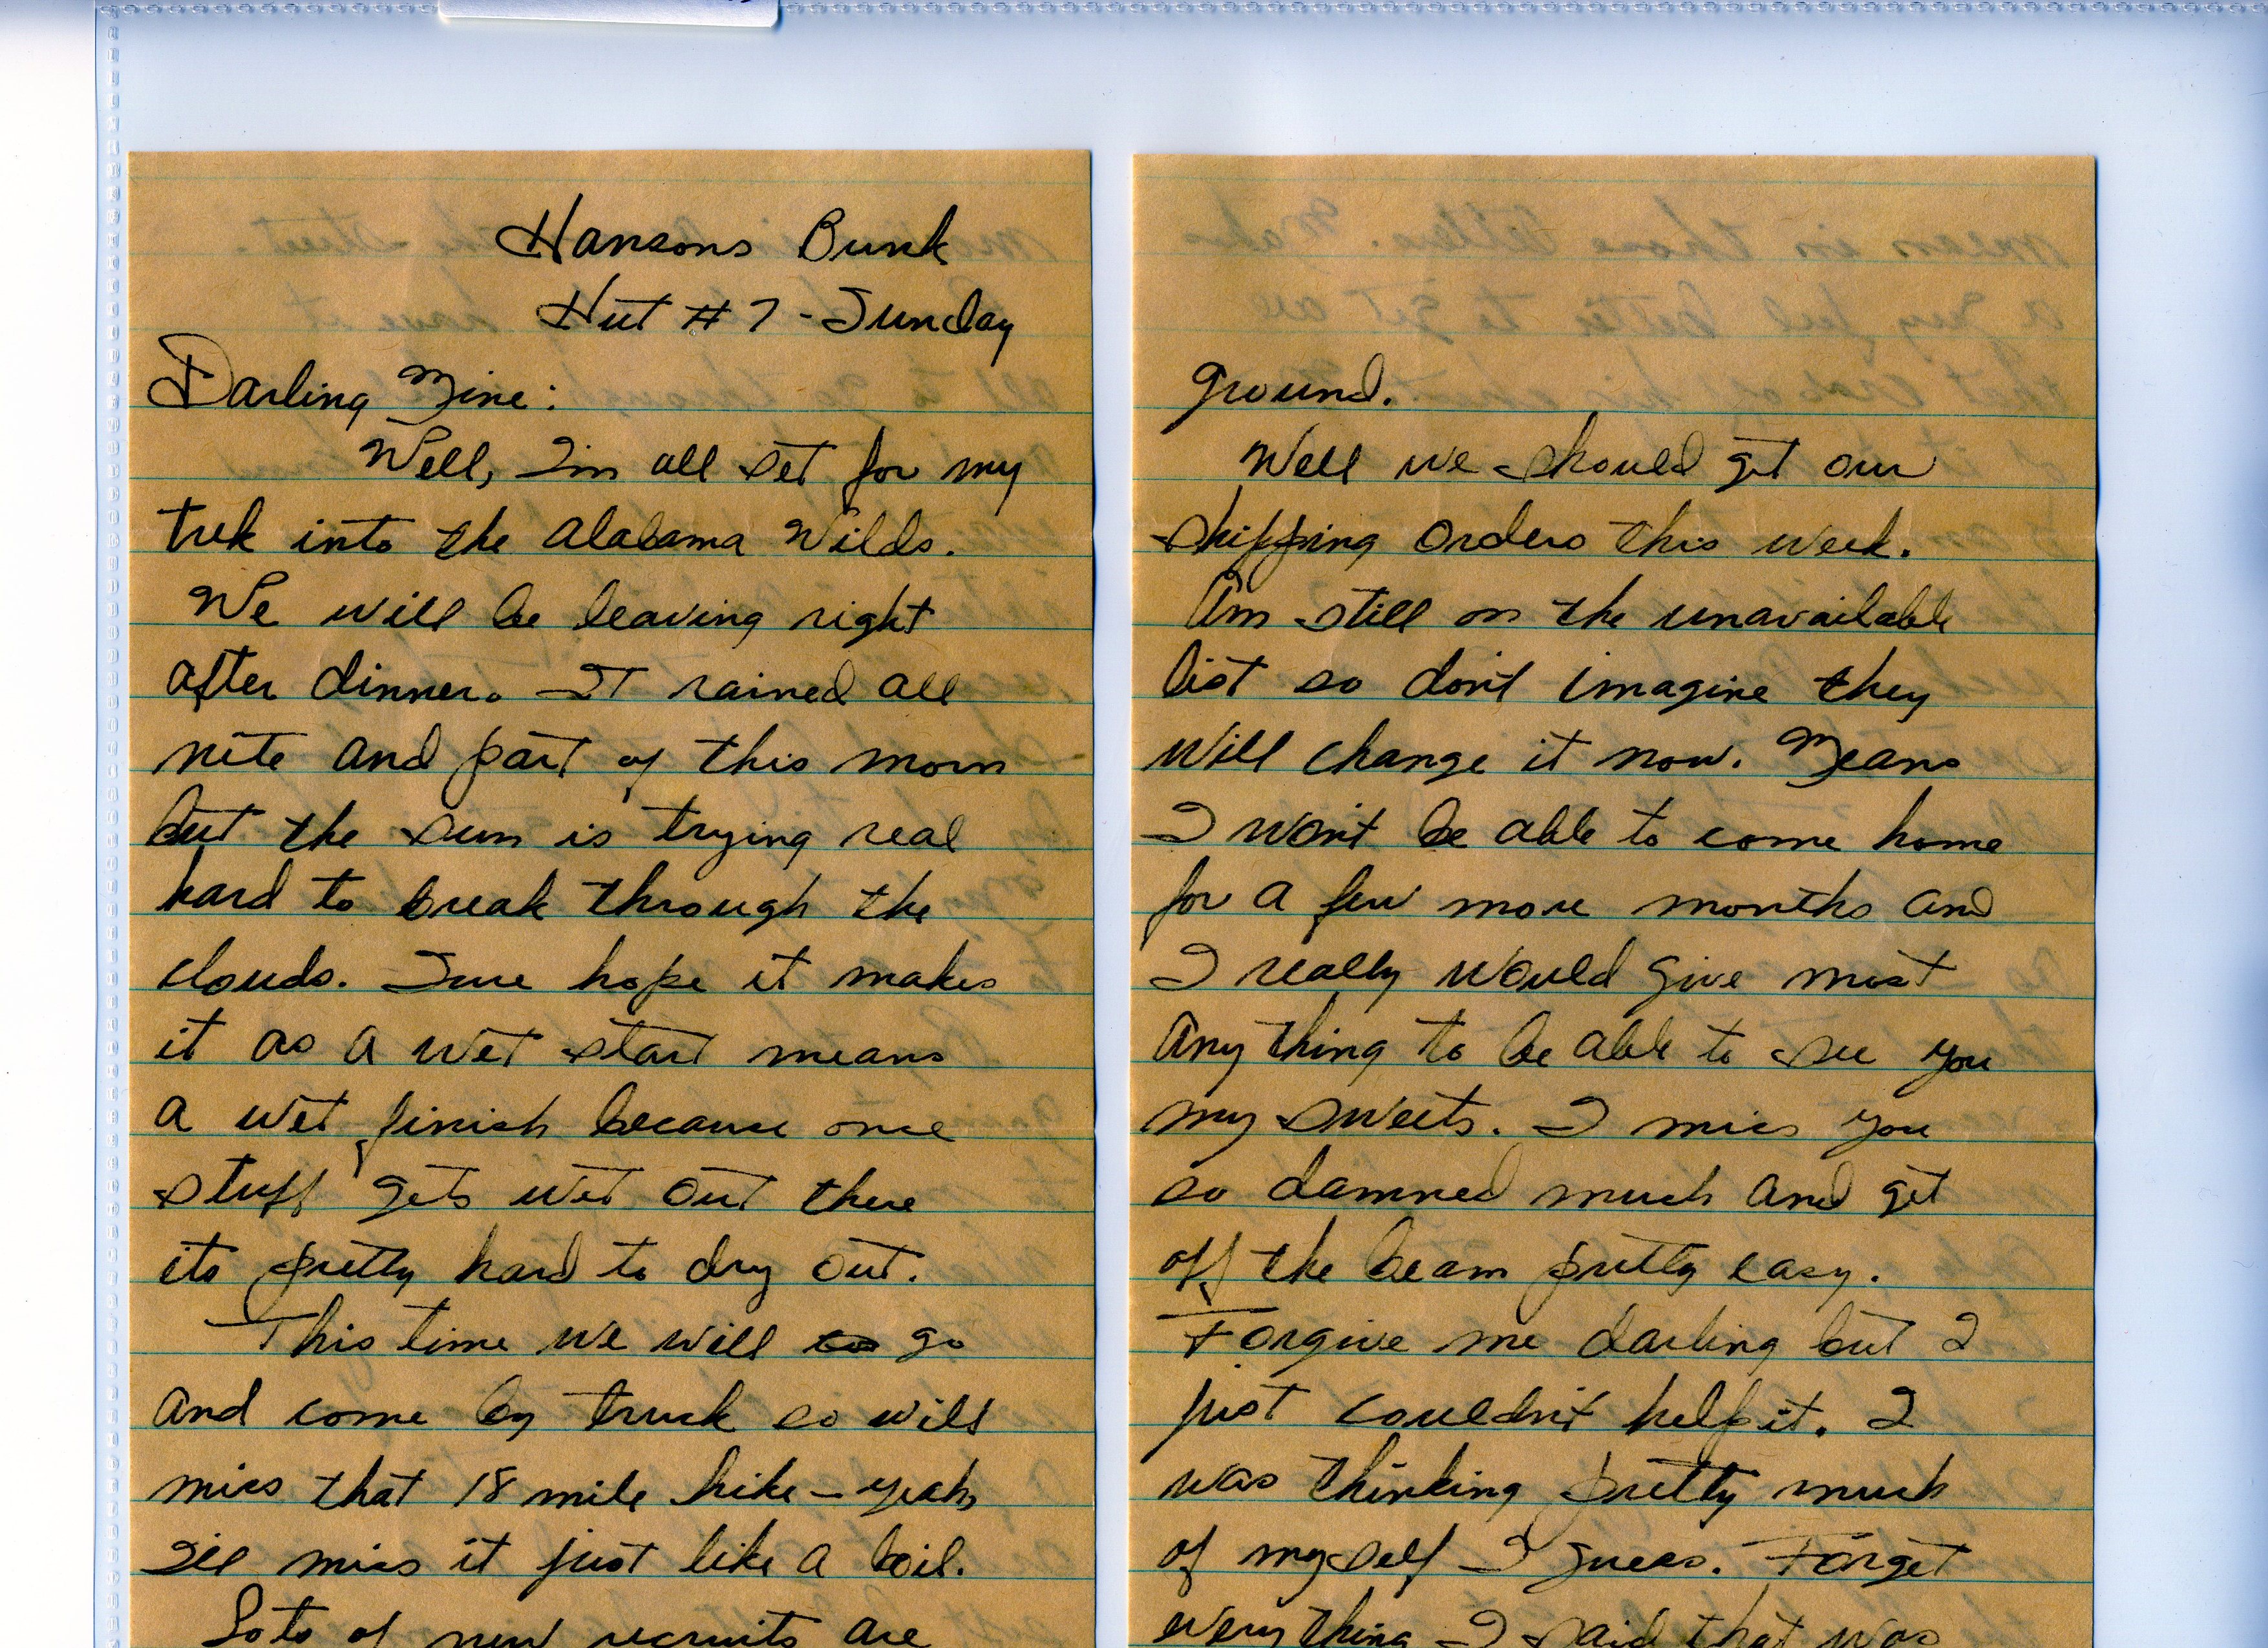 Hansons Bunk
Hut #7 - Sunday
Darling Mine:
Well, Im all set for my
trek into the Alabama Wilds.
We will be leaving right
after dinner. It rained all
nite and part of this morn
but the sun is trying real
hard to break through the
clouds. Sure hope it makes
it as a wet start means
a wet finish because once
stuff gets wet out there
its pretty hard to dry out.
This time we will go
and come by truck so will
miss that 18 mile hike - yeah,
Ill miss it just like a boil.
Lots of new recruits are
ground.
Well we should get our
shipping orders this week.
Am still on the unavailable
list so don't imagine they
will change it now. Means
I won't be able to come home
for a few more months and
I really would give most
anything to be able to see you
my sweets. I miss you
so damned much and get
off the beam pretty easy.
Forgive me darling but I
just couldn't help it. I
was thinking pretty much
of myself I guess. Forget
everything I said that was